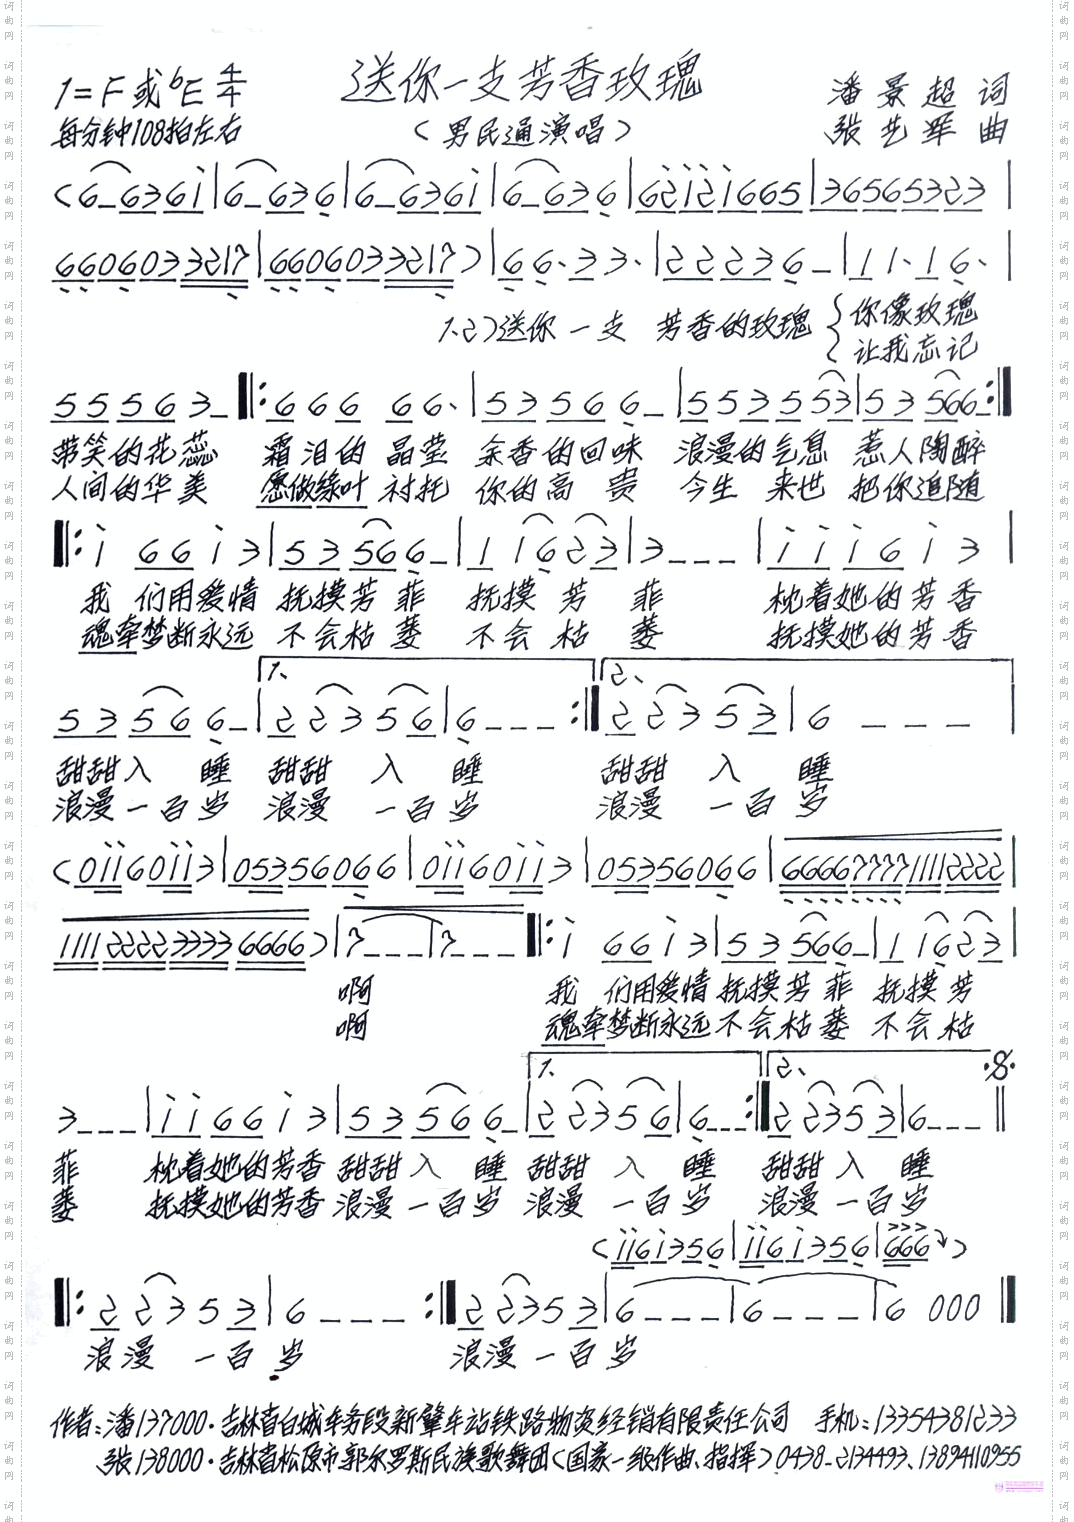 送你一支芳香玫瑰
1=F或bE 4/4
潘景超 词
每分钟108拍左右
(男民通演唱)
张艺军 曲
(6-636i|6-636|6-636i|6-636|62i2i665|36565323|
66060333217|66060333217)|66·33·|22236-|11·16·|
1.2)送你 一支 芳香的玫瑰 {你像玫瑰
让我忘记
55563-‖:66666·|53566-|553553|53566-:‖
带笑的花蕊 霜泪的晶莹 余香的回味 浪漫的气息 惹人陶醉
人间的华美 愿做绿叶衬托 你的高贵 今生来世 把你追随
‖:i66i3|53566-|1i623|3---|iii6i3|
我们用爱情 抚摸芳菲 抚摸芳菲 枕着她的芳香
魂牵梦断永远 不会枯萎 不会枯萎 抚摸她的芳香
1、
2、
53566-|22356|6---:‖22353|6---|
甜甜入睡 甜甜入睡 甜甜入睡
浪漫一百岁 浪漫一百岁 浪漫一百岁
(0ii60ii3|05356066|0ii60ii3|05356066|6666777711112222|
1111222233336666)|7---|7---‖:i66i3|53566-|11623|
啊 我们用爱情 抚摸芳菲 抚摸芳
啊 魂牵梦断永远 不会枯萎 不会枯
1、
2、
3---|ii66i3|53566-|22356|6---:‖22353|6---‖
菲 枕着她的芳香 甜甜入睡 甜甜入睡 甜甜入睡
萎 抚摸她的芳香 浪漫一百岁 浪漫一百岁 浪漫一百岁
(ii6i356|ii6i356|666)
‖:22353|6---:‖22353|6---|6---|6000‖
浪漫一百岁 浪漫一百岁
作者:潘137000·吉林省白城车务段新肇车站铁路物资经销有限责任公司 手机:13354381233
张138000·吉林省松原市郭尔罗斯民族歌舞团(国家一级作曲、指挥)0438-2134493、13894110955
词曲网